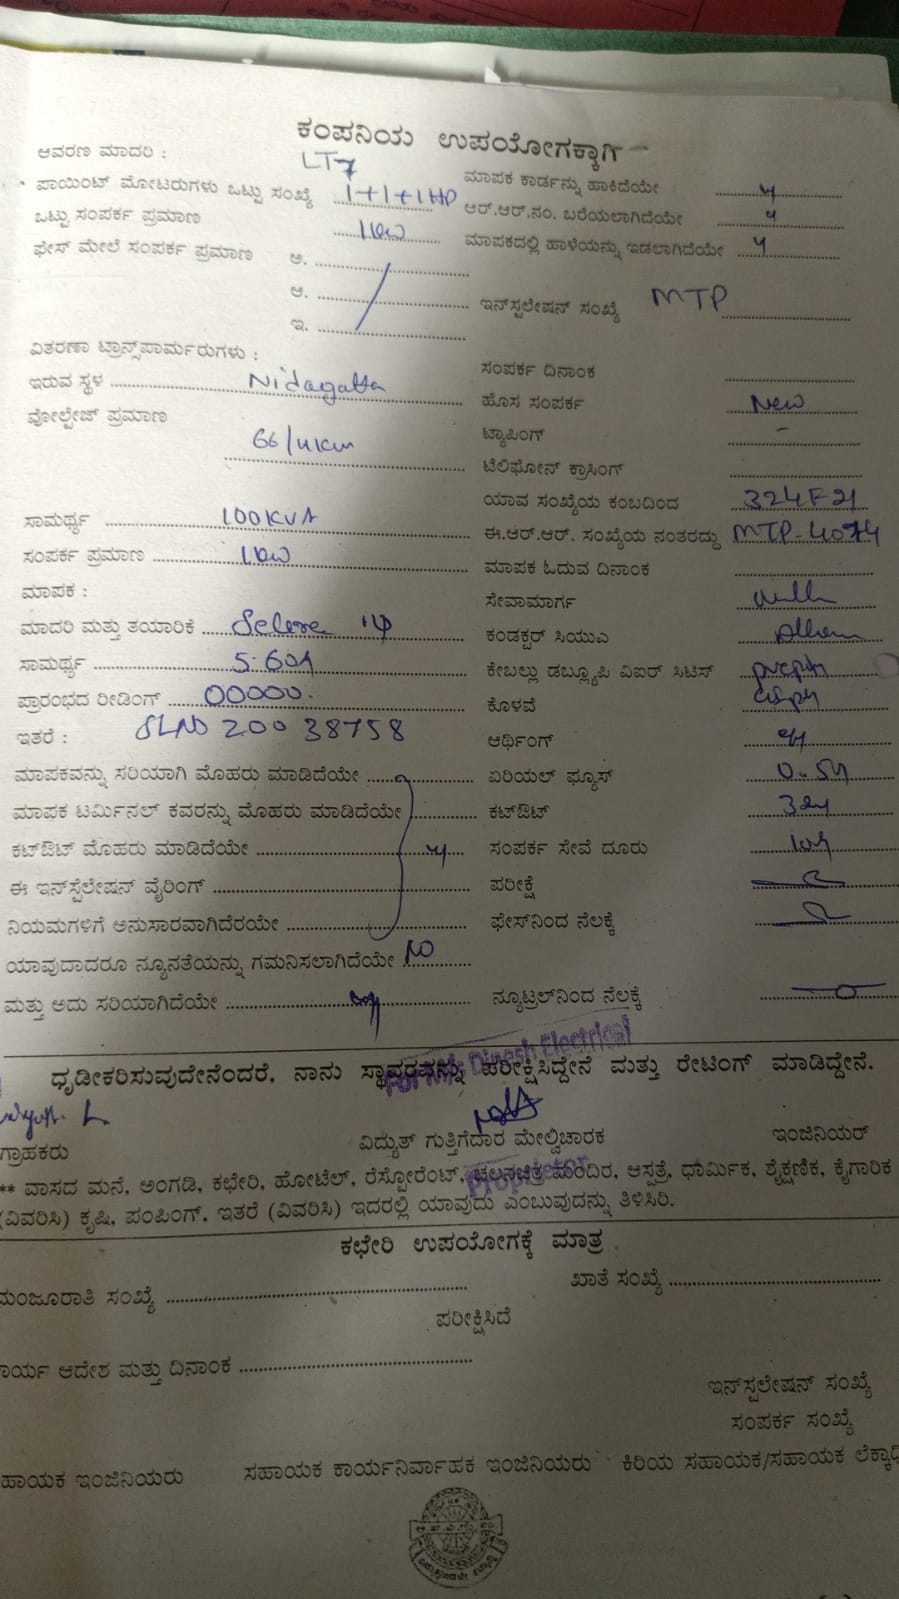 ಕಂಪನಿಯ ಉಪಯೋಗಕ್ಕಾಗಿ
ಆವರಣ ಮಾದರಿ : LT7
ಮಾಪಕ ಕಾರ್ಡನ್ನು ಹಾಕಿದೆಯೇ y
ಪಾಯಿಂಟ್ ಮೋಟರುಗಳು ಒಟ್ಟು ಸಂಖ್ಯೆ 1+1+1HP
ಆರ್.ಆರ್.ನಂ. ಬರೆಯಲಾಗಿದೆಯೇ y
ಒಟ್ಟು ಸಂಪರ್ಕ ಪ್ರಮಾಣ 1kw
ಮಾಪಕದಲ್ಲಿ ಹಾಳೆಯನ್ನು ಇಡಲಾಗಿದೆಯೇ y
ಫೇಸ್ ಮೇಲೆ ಸಂಪರ್ಕ ಪ್ರಮಾಣ ಅ.
ಆ.
ಇ.
ಇನ್‌ಸ್ಪಲೇಷನ್ ಸಂಖ್ಯೆ MTP
ವಿತರಣಾ ಟ್ರಾನ್ಸ್‌ಪಾರ್ಮರುಗಳು :
ಸಂಪರ್ಕ ದಿನಾಂಕ
ಇರುವ ಸ್ಥಳ Nidagatta
ಹೊಸ ಸಂಪರ್ಕ New
ವೋಲ್ಟೇಜ್ ಪ್ರಮಾಣ
ಟ್ಯಾಪಿಂಗ್ -
66/11KW
ಟೆಲಿಫೋನ್ ಕ್ರಾಸಿಂಗ್
ಯಾವ ಸಂಖ್ಯೆಯ ಕಂಬದಿಂದ 324F21
ಸಾಮರ್ಥ್ಯ 100KVA
ಈ.ಆರ್.ಆರ್. ಸಂಖ್ಯೆಯ ನಂತರದ್ದು MTP-4074
ಸಂಪರ್ಕ ಪ್ರಮಾಣ 1kw
ಮಾಪಕ ಓದುವ ದಿನಾಂಕ
ಮಾಪಕ :
ಸೇವಾಮಾರ್ಗ
ಮಾದರಿ ಮತ್ತು ತಯಾರಿಕೆ 1φ
ಕಂಡಕ್ಟರ್ ಸಿಯುಎ
ಸಾಮರ್ಥ್ಯ 5-60A
ಕೇಬಲ್ಲು ಡಬ್ಲ್ಯೂಪಿ ವಿಐರ್ ಸಿಟಿಸ್
ಪ್ರಾರಂಭದ ರೀಡಿಂಗ್ 00000.
ಕೊಳವೆ
ಇತರೆ : SLNO 20038758
ಆರ್ಥಿಂಗ್
ಮಾಪಕವನ್ನು ಸರಿಯಾಗಿ ಮೊಹರು ಮಾಡಿದೆಯೇ
ಏರಿಯಲ್ ಫ್ಯೂಸ್
ಮಾಪಕ ಟರ್ಮಿನಲ್ ಕವರನ್ನು ಮೊಹರು ಮಾಡಿದೆಯೇ
ಕಟ್‌ಔಟ್
ಕಟ್‌ಔಟ್ ಮೊಹರು ಮಾಡಿದೆಯೇ y
ಸಂಪರ್ಕ ಸೇವೆ ದೂರು
ಈ ಇನ್‌ಸ್ಪೆಲೇಷನ್ ವೈರಿಂಗ್
ಪರೀಕ್ಷೆ
ನಿಯಮಗಳಿಗೆ ಅನುಸಾರವಾಗಿದೆರಯೇ
ಫೇಸ್‌ನಿಂದ ನೆಲಕ್ಕೆ
ಯಾವುದಾದರೂ ನ್ಯೂನತೆಯನ್ನು ಗಮನಿಸಲಾಗಿದೆಯೇ NO
ಮತ್ತು ಅದು ಸರಿಯಾಗಿದೆಯೇ
ನ್ಯೂಟ್ರಲ್‌ನಿಂದ ನೆಲಕ್ಕೆ
For M/s Dinesh Electrical
ಧೃಡೀಕರಿಸುವುದೇನೆಂದರೆ, ನಾನು ಸ್ಥಾವರವನ್ನು ಪರೀಕ್ಷಿಸಿದ್ದೇನೆ ಮತ್ತು ರೇಟಿಂಗ್ ಮಾಡಿದ್ದೇನೆ.
ಗ್ರಾಹಕರು ವಿದ್ಯುತ್ ಗುತ್ತಿಗೆದಾರ ಮೇಲ್ವಿಚಾರಕ ಇಂಜಿನಿಯರ್
Proprietor
** ವಾಸದ ಮನೆ, ಅಂಗಡಿ, ಕಛೇರಿ, ಹೋಟೆಲ್, ರೆಸ್ಟೋರೆಂಟ್, ಚಲನಚಿತ್ರ ಮಂದಿರ, ಆಸ್ಪತ್ರೆ, ಧಾರ್ಮಿಕ, ಶೈಕ್ಷಣಿಕ, ಕೈಗಾರಿಕ
(ವಿವರಿಸಿ) ಕೃಷಿ, ಪಂಪಿಂಗ್, ಇತರೆ (ವಿವರಿಸಿ) ಇದರಲ್ಲಿ ಯಾವುದು ಎಂಬುವುದನ್ನು ತಿಳಿಸಿರಿ.
ಕಛೇರಿ ಉಪಯೋಗಕ್ಕೆ ಮಾತ್ರ
ಮಂಜೂರಾತಿ ಸಂಖ್ಯೆ
ಖಾತೆ ಸಂಖ್ಯೆ
ಪರೀಕ್ಷಿಸಿದೆ
ಕಾರ್ಯ ಆದೇಶ ಮತ್ತು ದಿನಾಂಕ
ಇನ್‌ಸ್ಪಲೇಷನ್ ಸಂಖ್ಯೆ
ಸಂಪರ್ಕ ಸಂಖ್ಯೆ
ಸಹಾಯಕ ಇಂಜಿನಿಯರು ಸಹಾಯಕ ಕಾರ್ಯನಿರ್ವಾಹಕ ಇಂಜಿನಿಯರು ಕಿರಿಯ ಸಹಾಯಕ/ಸಹಾಯಕ